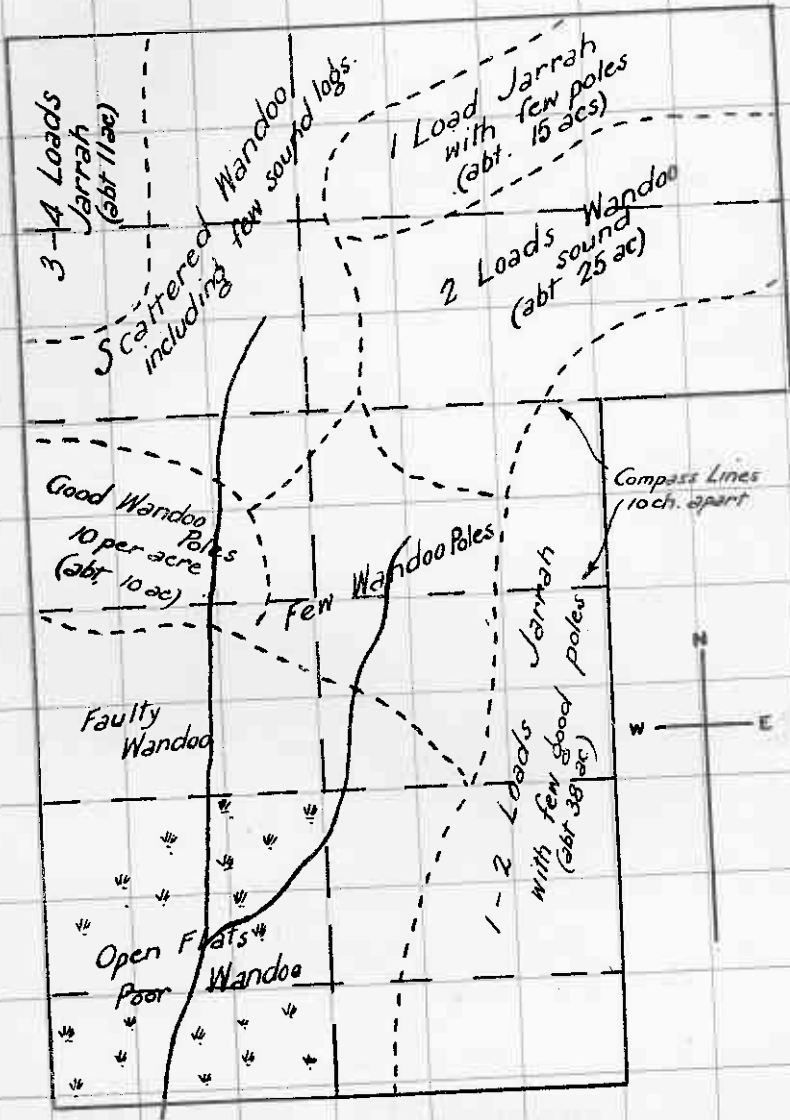 3-4 Loads
Jarrah
(abt 11ac)
Scattered Wandoo
including few sound logs.
1 Load Jarrah
with few poles
(abt. 15 acs)
2 Loads Wandoo
sound
(abt 25 ac)
Good Wandoo
Poles
10 per acre
(abt. 10 ac)
Few Wandoo Poles
Compass Lines
10 ch. apart
Faulty
Wandoo
1-2 Loads Jarrah
with few good poles
(abt 38 ac)
N
W
E
Open Flats
Poor Wandoo